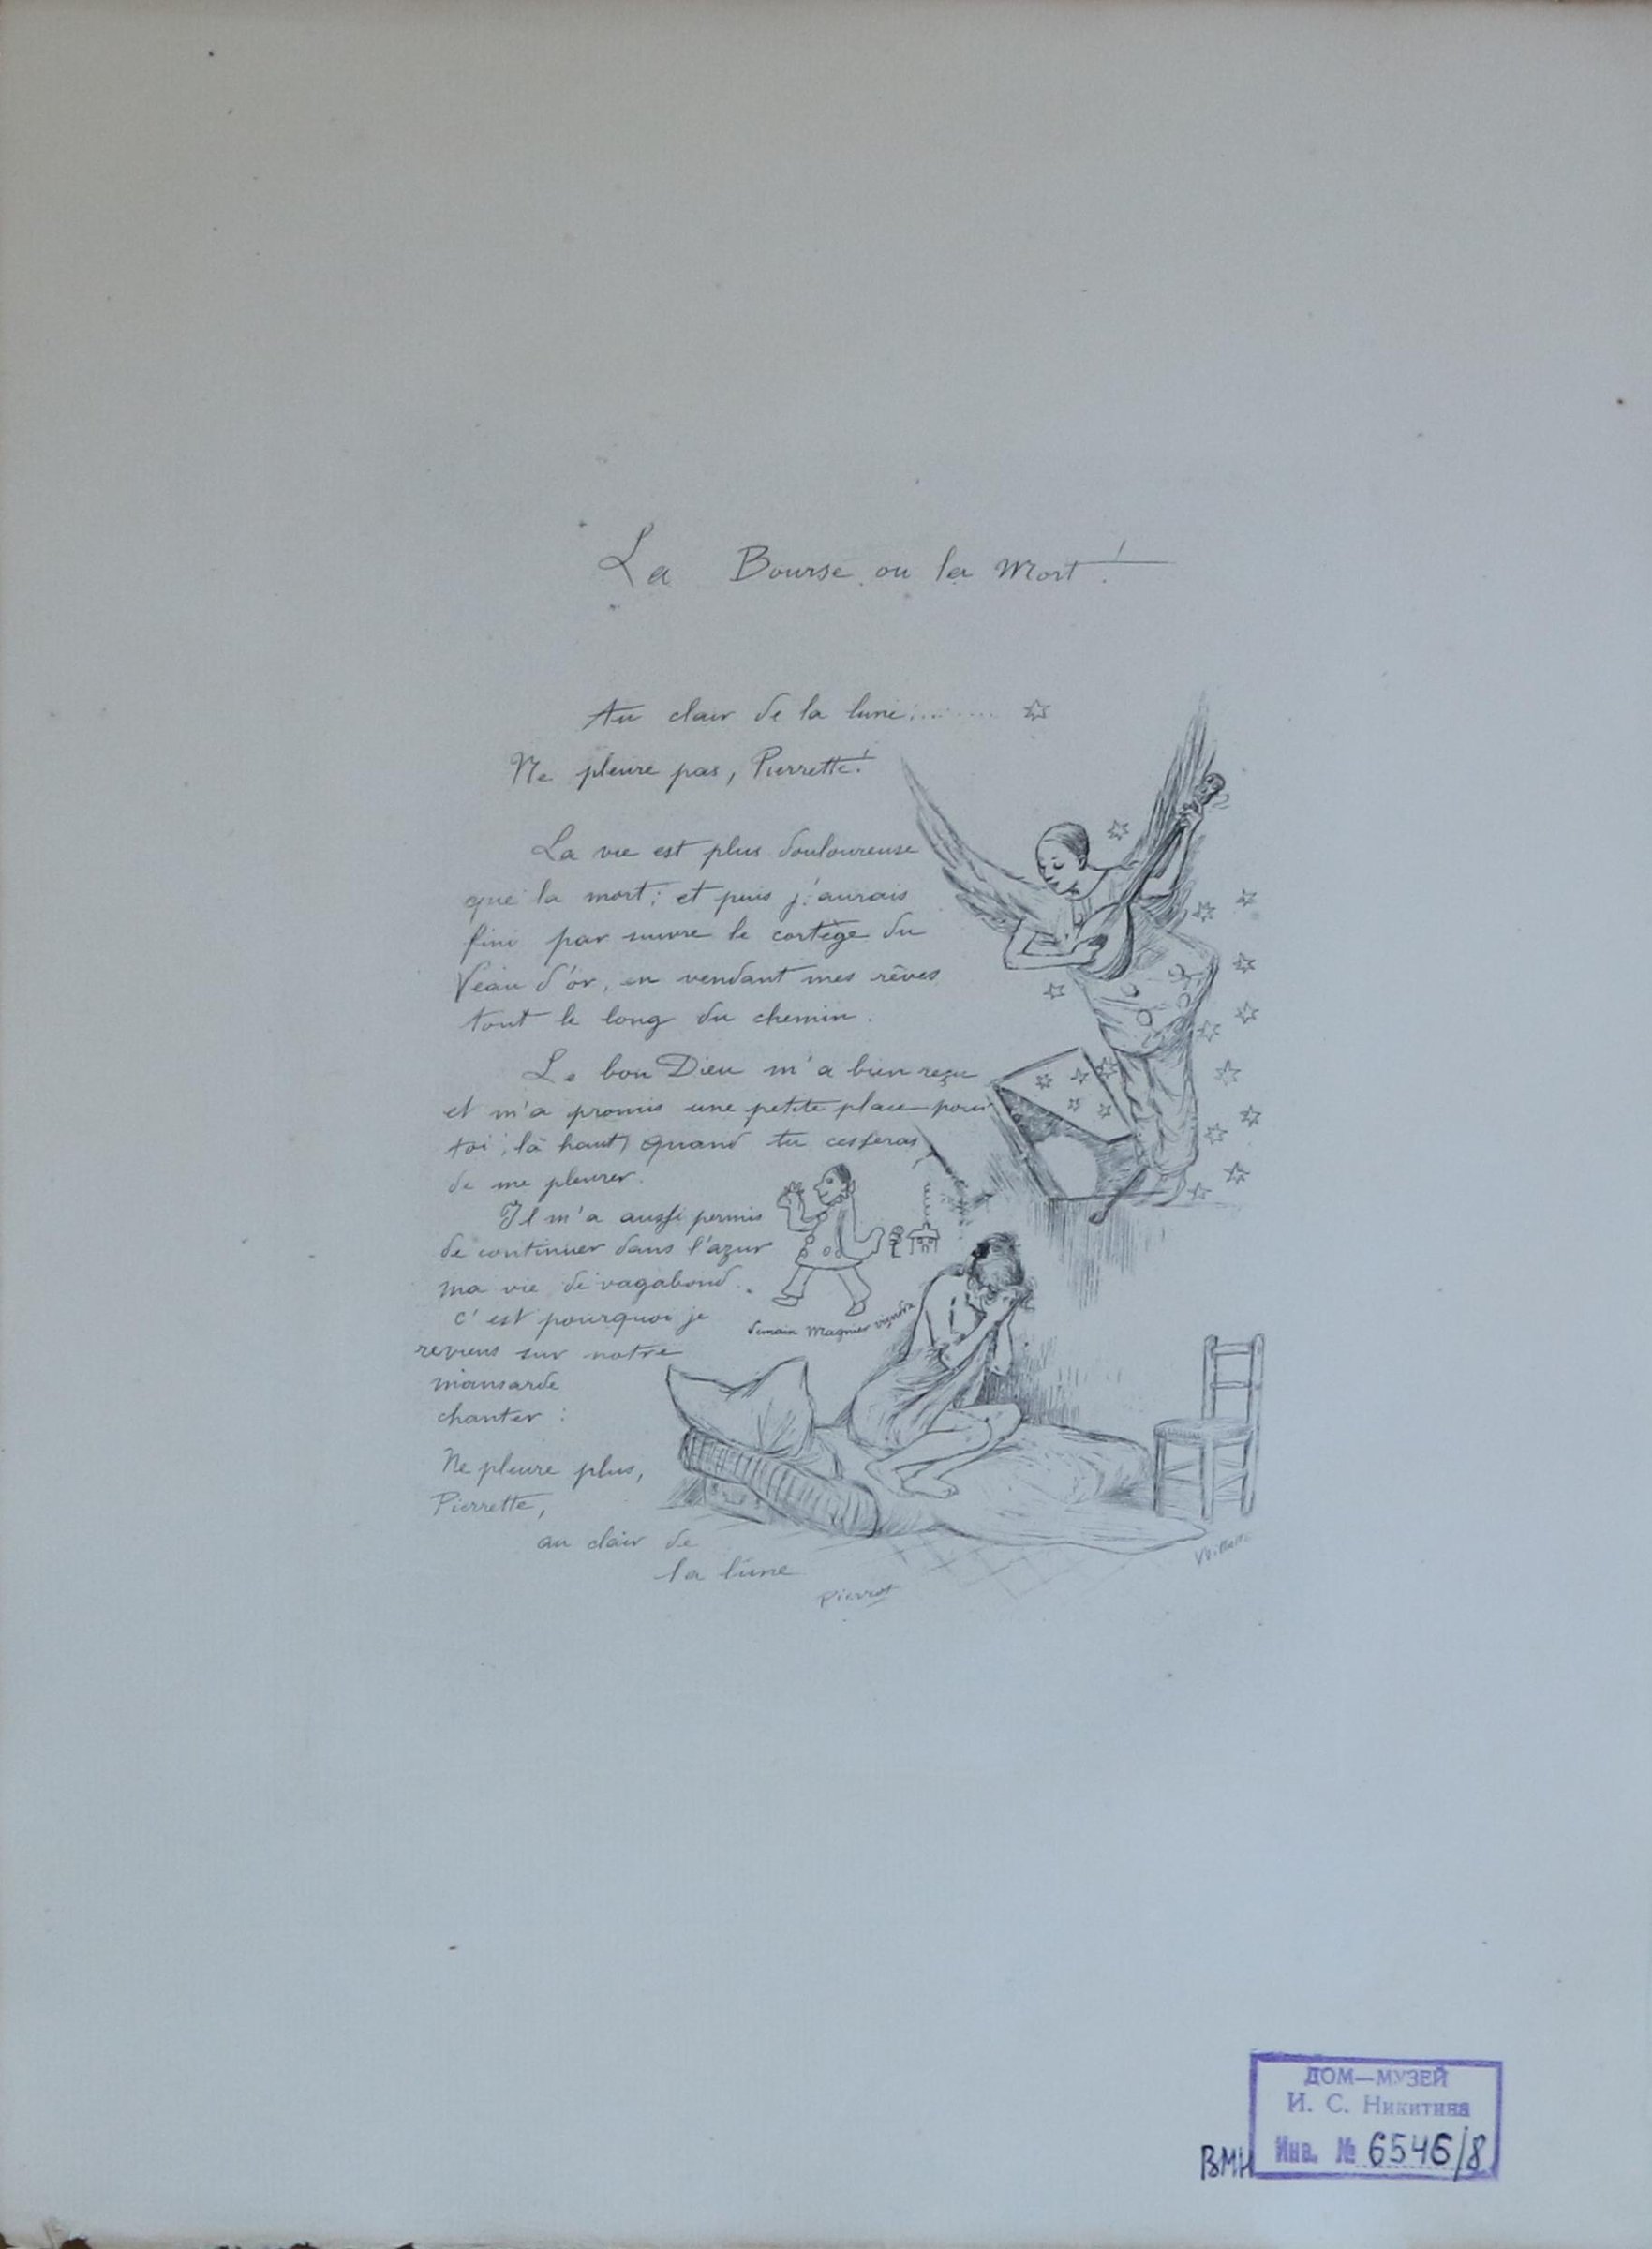 La Bourse ou la Mort !
Au clair de la lune..........
Ne pleure pas, Pierrette !
La vie est plus douloureuse
que la mort ; et puis j'aurais
fini par suivre le cortège du
Veau d'or, en vendant mes rêves
tout le long du chemin.
Le bon Dieu m'a bien reçu
et m'a promis une petite place pour
toi, là haut, quand tu cesseras
de me pleurer.
Il m'a aussi permis
de continuer dans l'azur
ma vie de vagabond.
C'est pourquoi je
reviens sur notre
mansarde
chanter :
Demain Magnier viendra
Ne pleure plus,
Pierrette,
au clair de
la lune
Pierrot
Willette
ДОМ—МУЗЕЙ
И. С. Никитина
ВМН Инв. № 6546/8